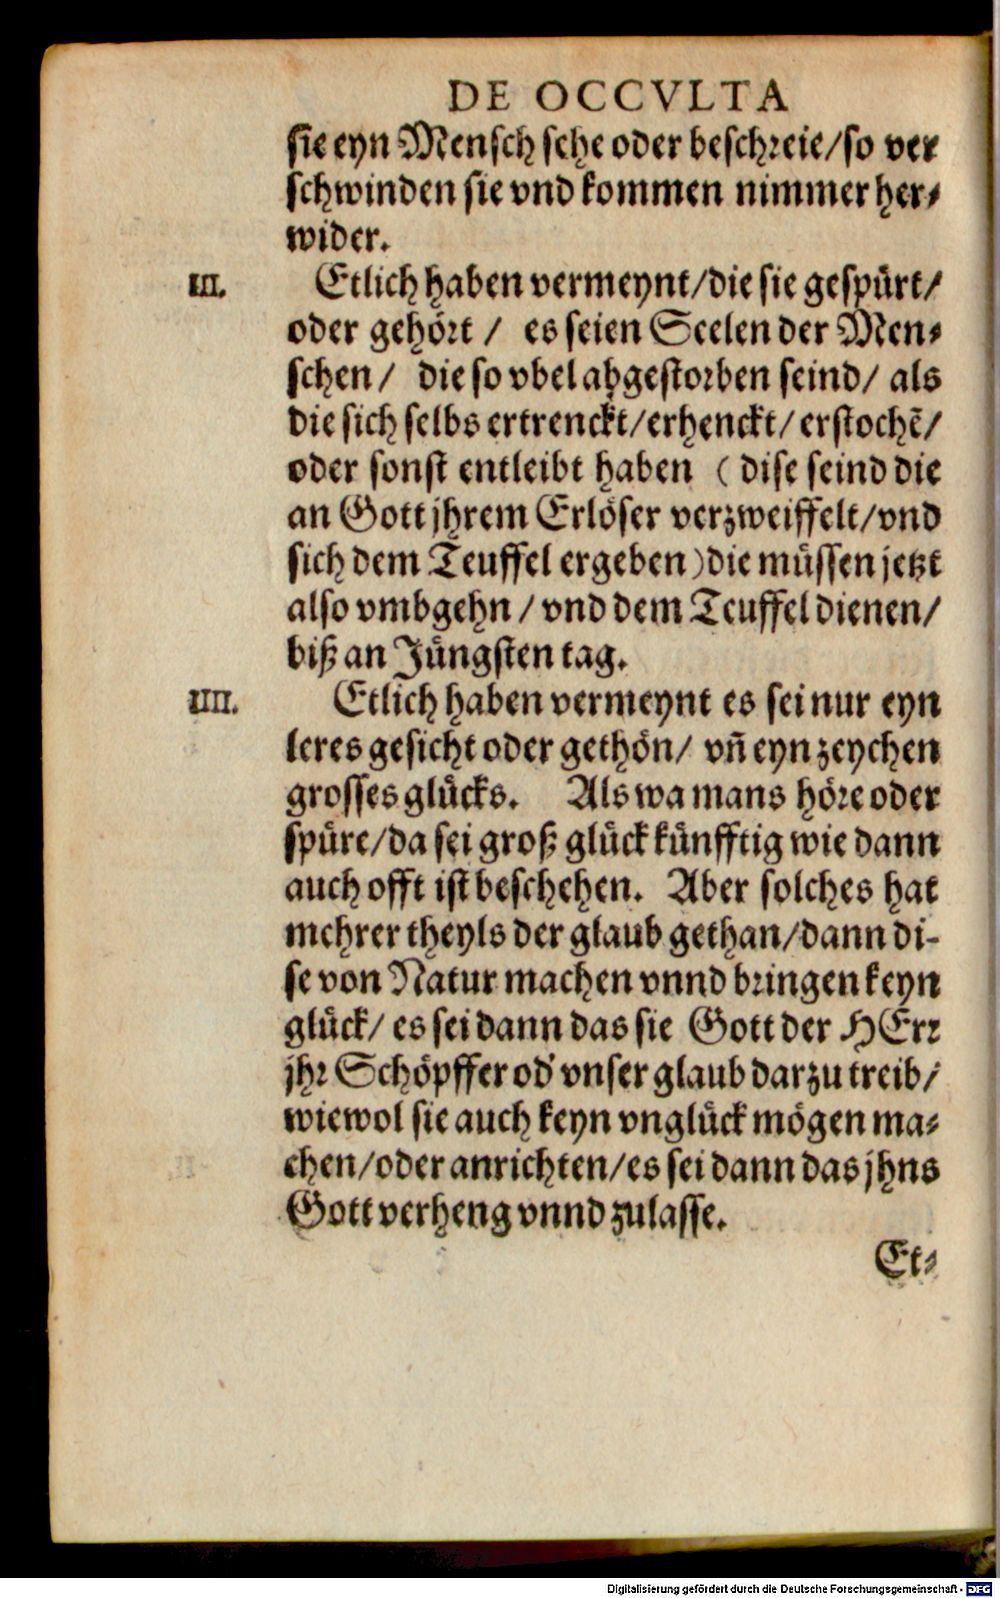 DE OCCVLTA
sie eyn Mensch sehe oder beschreie/so ver
schwinden sie vnd kommen nimmer her⸗
wider.
III. Etlich haben vermeynt/die sie gespürt/
oder gehört / es seien Seelen der Men⸗
schen/ die so vbel abgestorben seind/ als
die sich selbs ertrenckt/erhenckt/erstochē/
oder sonst entleibt haben ( dise seind die
an Gott jhrem Erlöser verzweiffelt/vnd
sich dem Teuffel ergeben)die müssen jetzt
also vmbgehn/vnd dem Teuffel dienen/
biß an Jüngsten tag.
IIII. Etlich haben vermeynt es sei nur eyn
leres gesicht oder gethön/ vñ eyn zeychen
grosses glücks. Als wa mans höre oder
spüre/da sei groß glück künfftig wie dann
auch offt ist beschehen. Aber solches hat
mehrer theyls der glaub gethan/dann di-
se von Natur machen vnnd bringen keyn
glück/ es sei dann das sie Gott der HErr
jhr Schöpffer od' vnser glaub darzu treib/
wiewol sie auch keyn vnglück mögen ma⸗
chen/oder anrichten/es sei dann das jhns
Gott verheng vnnd zulasse.
Et⸗
Digitalisierung gefördert durch die Deutsche Forschungsgemeinschaft - DFG